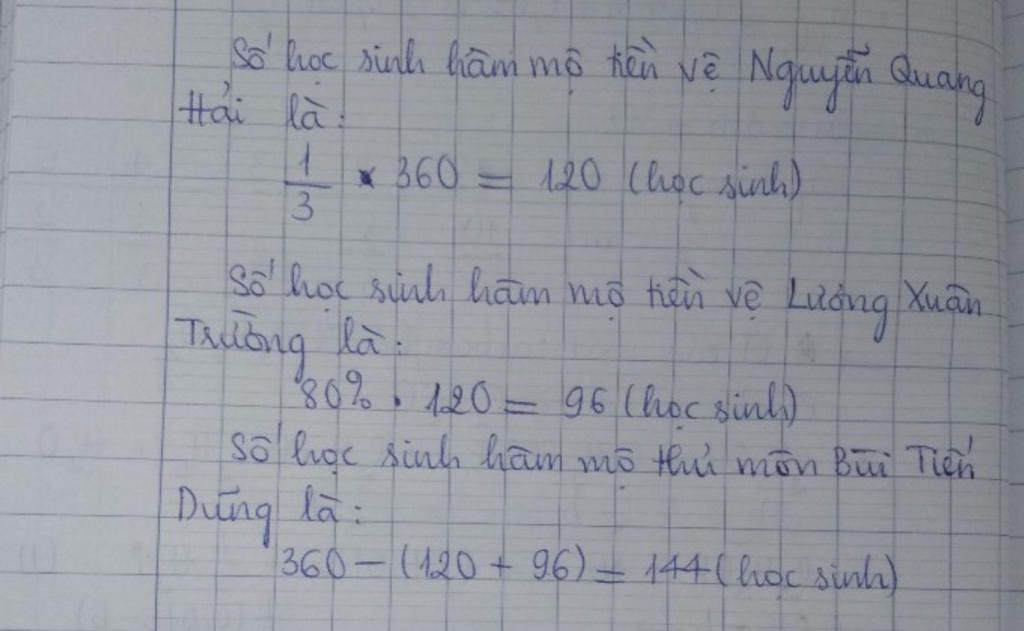 Số học sinh hâm mộ tiền vệ Nguyễn Quang
Hải là:
1/3 . 360 = 120 (học sinh)
Số học sinh hâm mộ tiền vệ Lương Xuân
Trường là:
80% . 120 = 96 (học sinh)
Số học sinh hâm mộ thủ môn Bùi Tiến
Dũng là:
360 - (120 + 96) = 144 (học sinh)